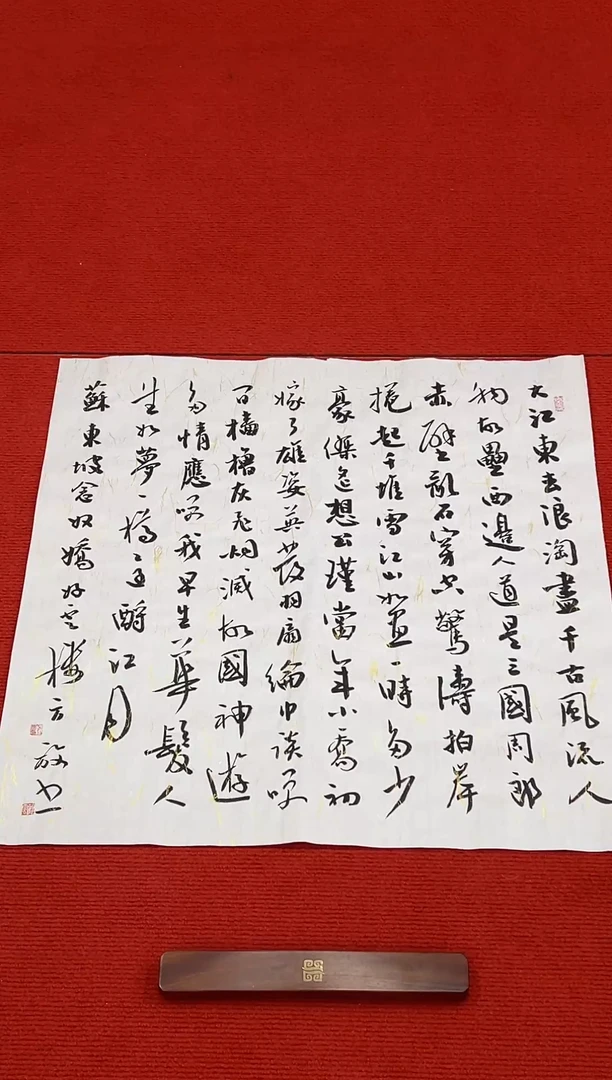 大江東去浪淘盡千古風流人
物故壘西邊人道是三國周郎
赤壁亂石穿空驚濤拍岸
捲起千堆雪江山如畫一時多少
豪傑遙想公瑾當年小喬初
嫁了雄姿英發羽扇綸巾談笑
間檣櫓灰飛烟滅故國神遊
多情應笑我早生華髮人
生如夢一樽還酹江月
蘇東坡念奴嬌好雲樓方放书